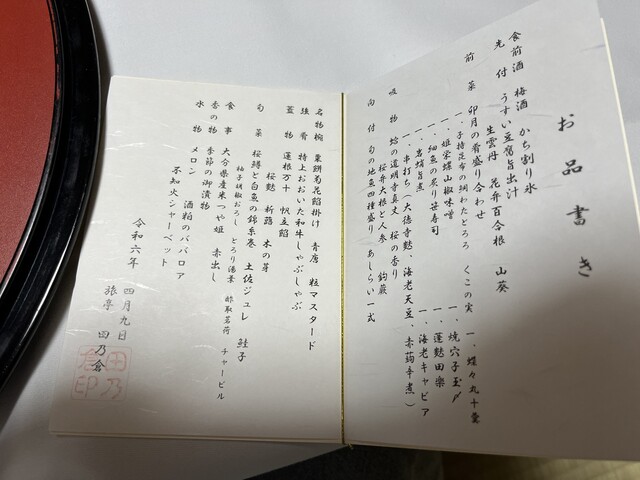 お品書き
食前酒 梅酒 かち割り氷
先付 うすい豆腐旨出汁
生雲丹 花弁百合根 山葵
前菜 卯月の肴盛り合わせ
一、子持昆布の琲わたとろろ くこの実 一、蝶々丸十蜜
一、姫栄螺山椒味噌 一、焼穴子玉〆
一、細魚の炙り笹寿司 一、蓬麩田楽
一、岩蛸旨煮 一、海老キャビア
一、串打ち(大徳寺麩、海老天豆、赤蒟辛煮)
吸物 蛤の道明寺真丈 桜の香り
桜弁大根と人参 鈎蕨
向付 旬の地魚四種盛り あしらい一式
名物椀 粟餅菊花餡掛け 青唐 粒マスタード
強肴 特上おおいた和牛しゃぶしゃぶ
蓋物 蓮根万十 帆立餡
桜麩 新蕗 木の芽
旬菜 桜鱒と白魚の錦糸巻 土佐ジュレ 鮭子
柚子胡椒おろし とろり湯葉 酢取茗荷 チャービル
食事 大分県産米つや姫 赤出し
香の物 季節の御漬物
水物 メロン 酒粕のババロア
不知火シャーベット
令和六年 四月九日
旅亭 田乃倉
田乃倉印